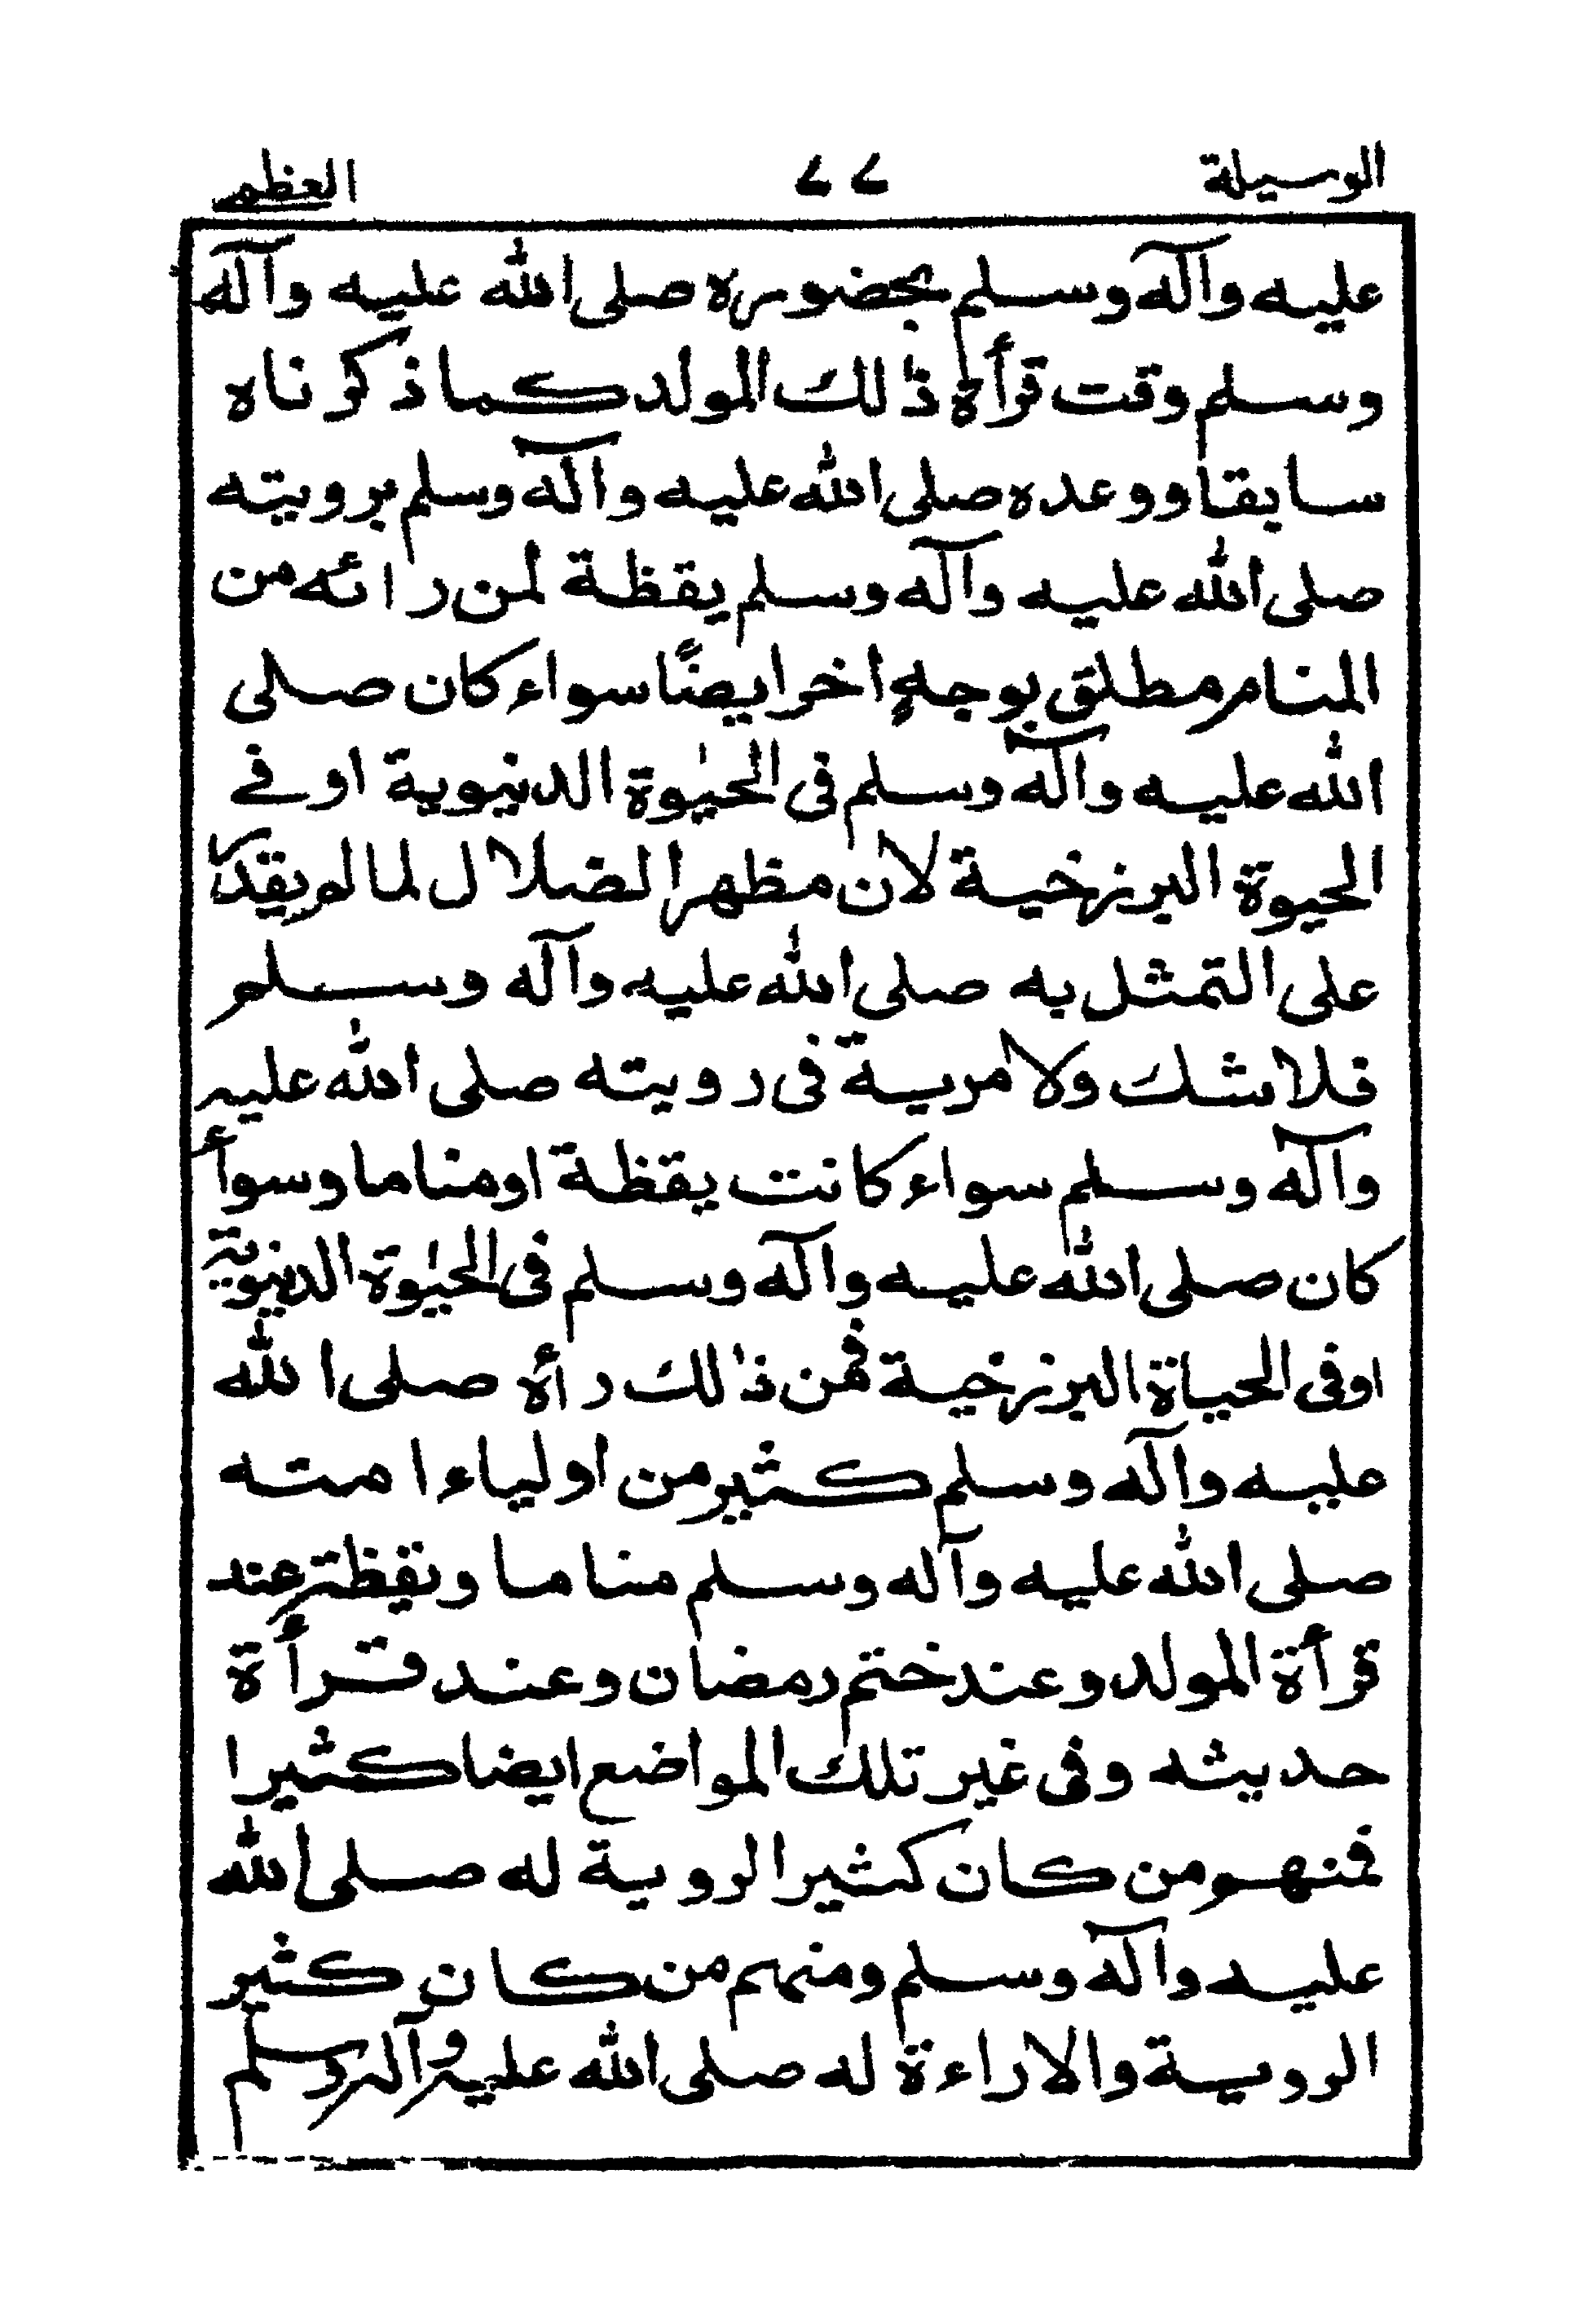 الوسيلة ٧٧ العظمى
عليه وآله وسلم بحضوره صلى الله عليه وآله
وسلم وقت قرأة ذلك المولد كما ذكرناه
سابقا ووعده صلى الله عليه وآله وسلم برويته
صلى الله عليه وآله وسلم يقظة لمن رائه من
المنام مطلق بوجهٍ اخر ايضًا سواء كان صلى
الله عليه وآله وسلم فى الحيٰوة الدنيوية اوفے
الحيوة البرزخية لان مظهر الضلال لما لم يقدر
على التمثل به صلى الله عليه وآله وسلم
فلا شك ولا مرية فى رويته صلى الله عليه
وآله وسلم سواء كانت يقظة او مناما وسوأ
كان صلى الله عليه وآله وسلم فى الحيٰوة الدنيوية
اوفى الحياة البرزخية فمن ذٰلك رأه صلى الله
عليه وآله وسلم كثير من اولياء امته
صلى الله عليه وآله وسلم مناما ونقظة عند
قرأة المولد وعند ختم رمضان وعند قرأة
حديثه وفى غير تلك المواضع ايضا كثيرا
فمنهم من كان كثير الروية له صلى الله
عليه وآله وسلم ومنهم من كان كثير
الروية والاراءة له صلى الله عليه وآله وسلم